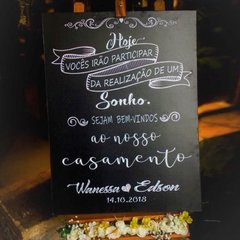 Hoje
VOCÊS IRÃO PARTICIPAR
DA REALIZAÇÃO DE UM
Sonho.
SEJAM BEM-VINDOS
ao nosso
casamento
Wanessa Edson
14.10.2018